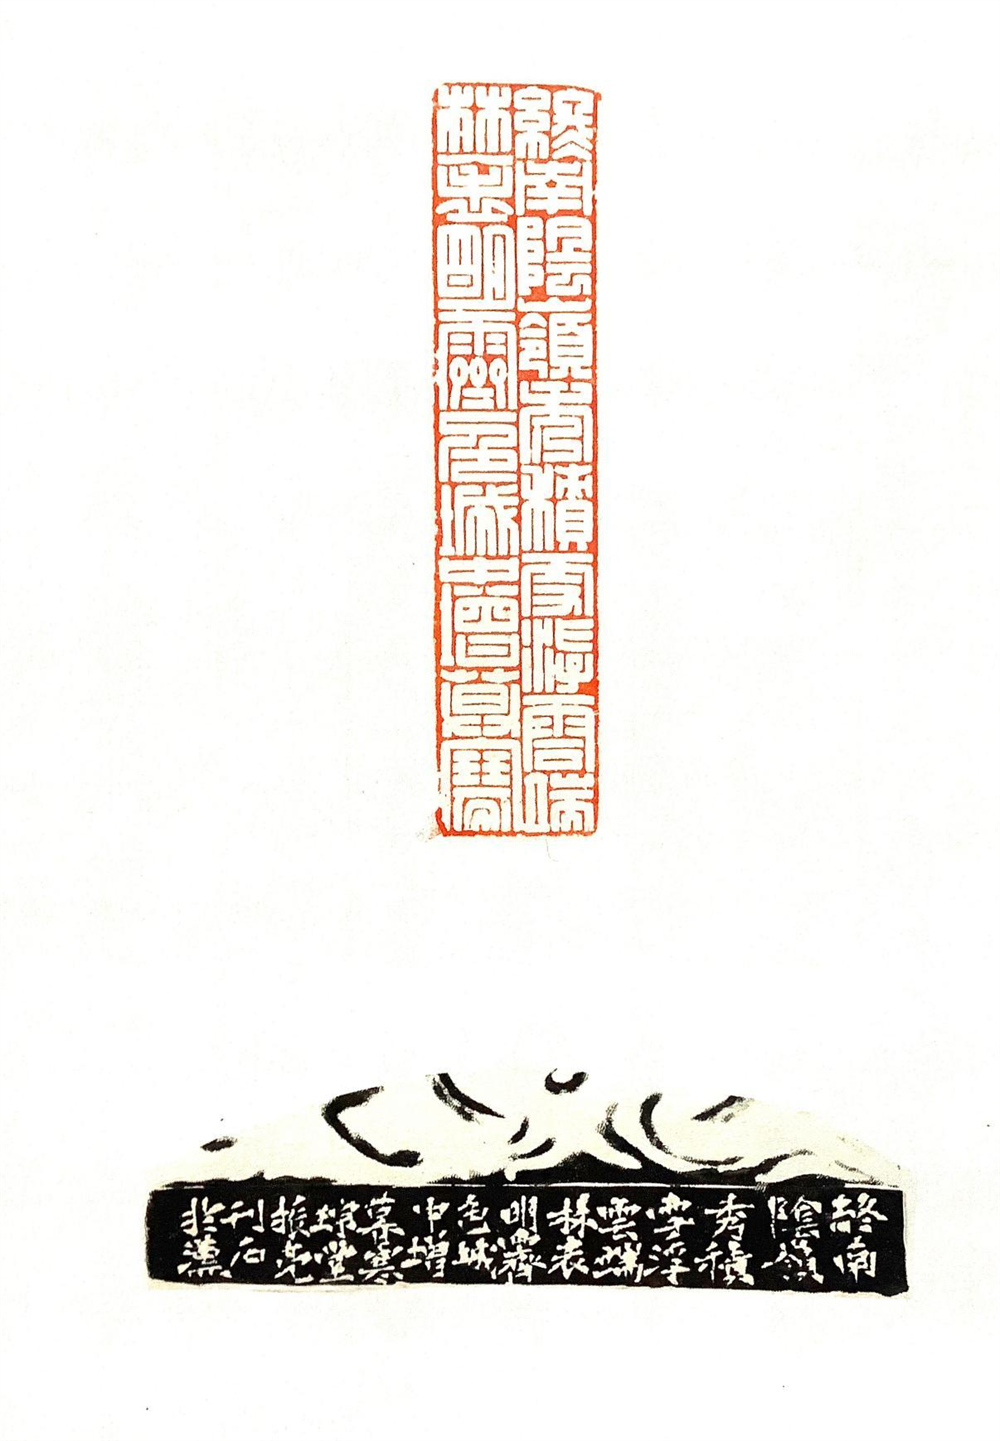 終南陰嶺秀積雪浮雲端
林表明霽色城中增暮寒
終南
陰嶺
秀積
雪浮
雲端
林表
明霽
色城
中增
暮寒
堂
刊石
於